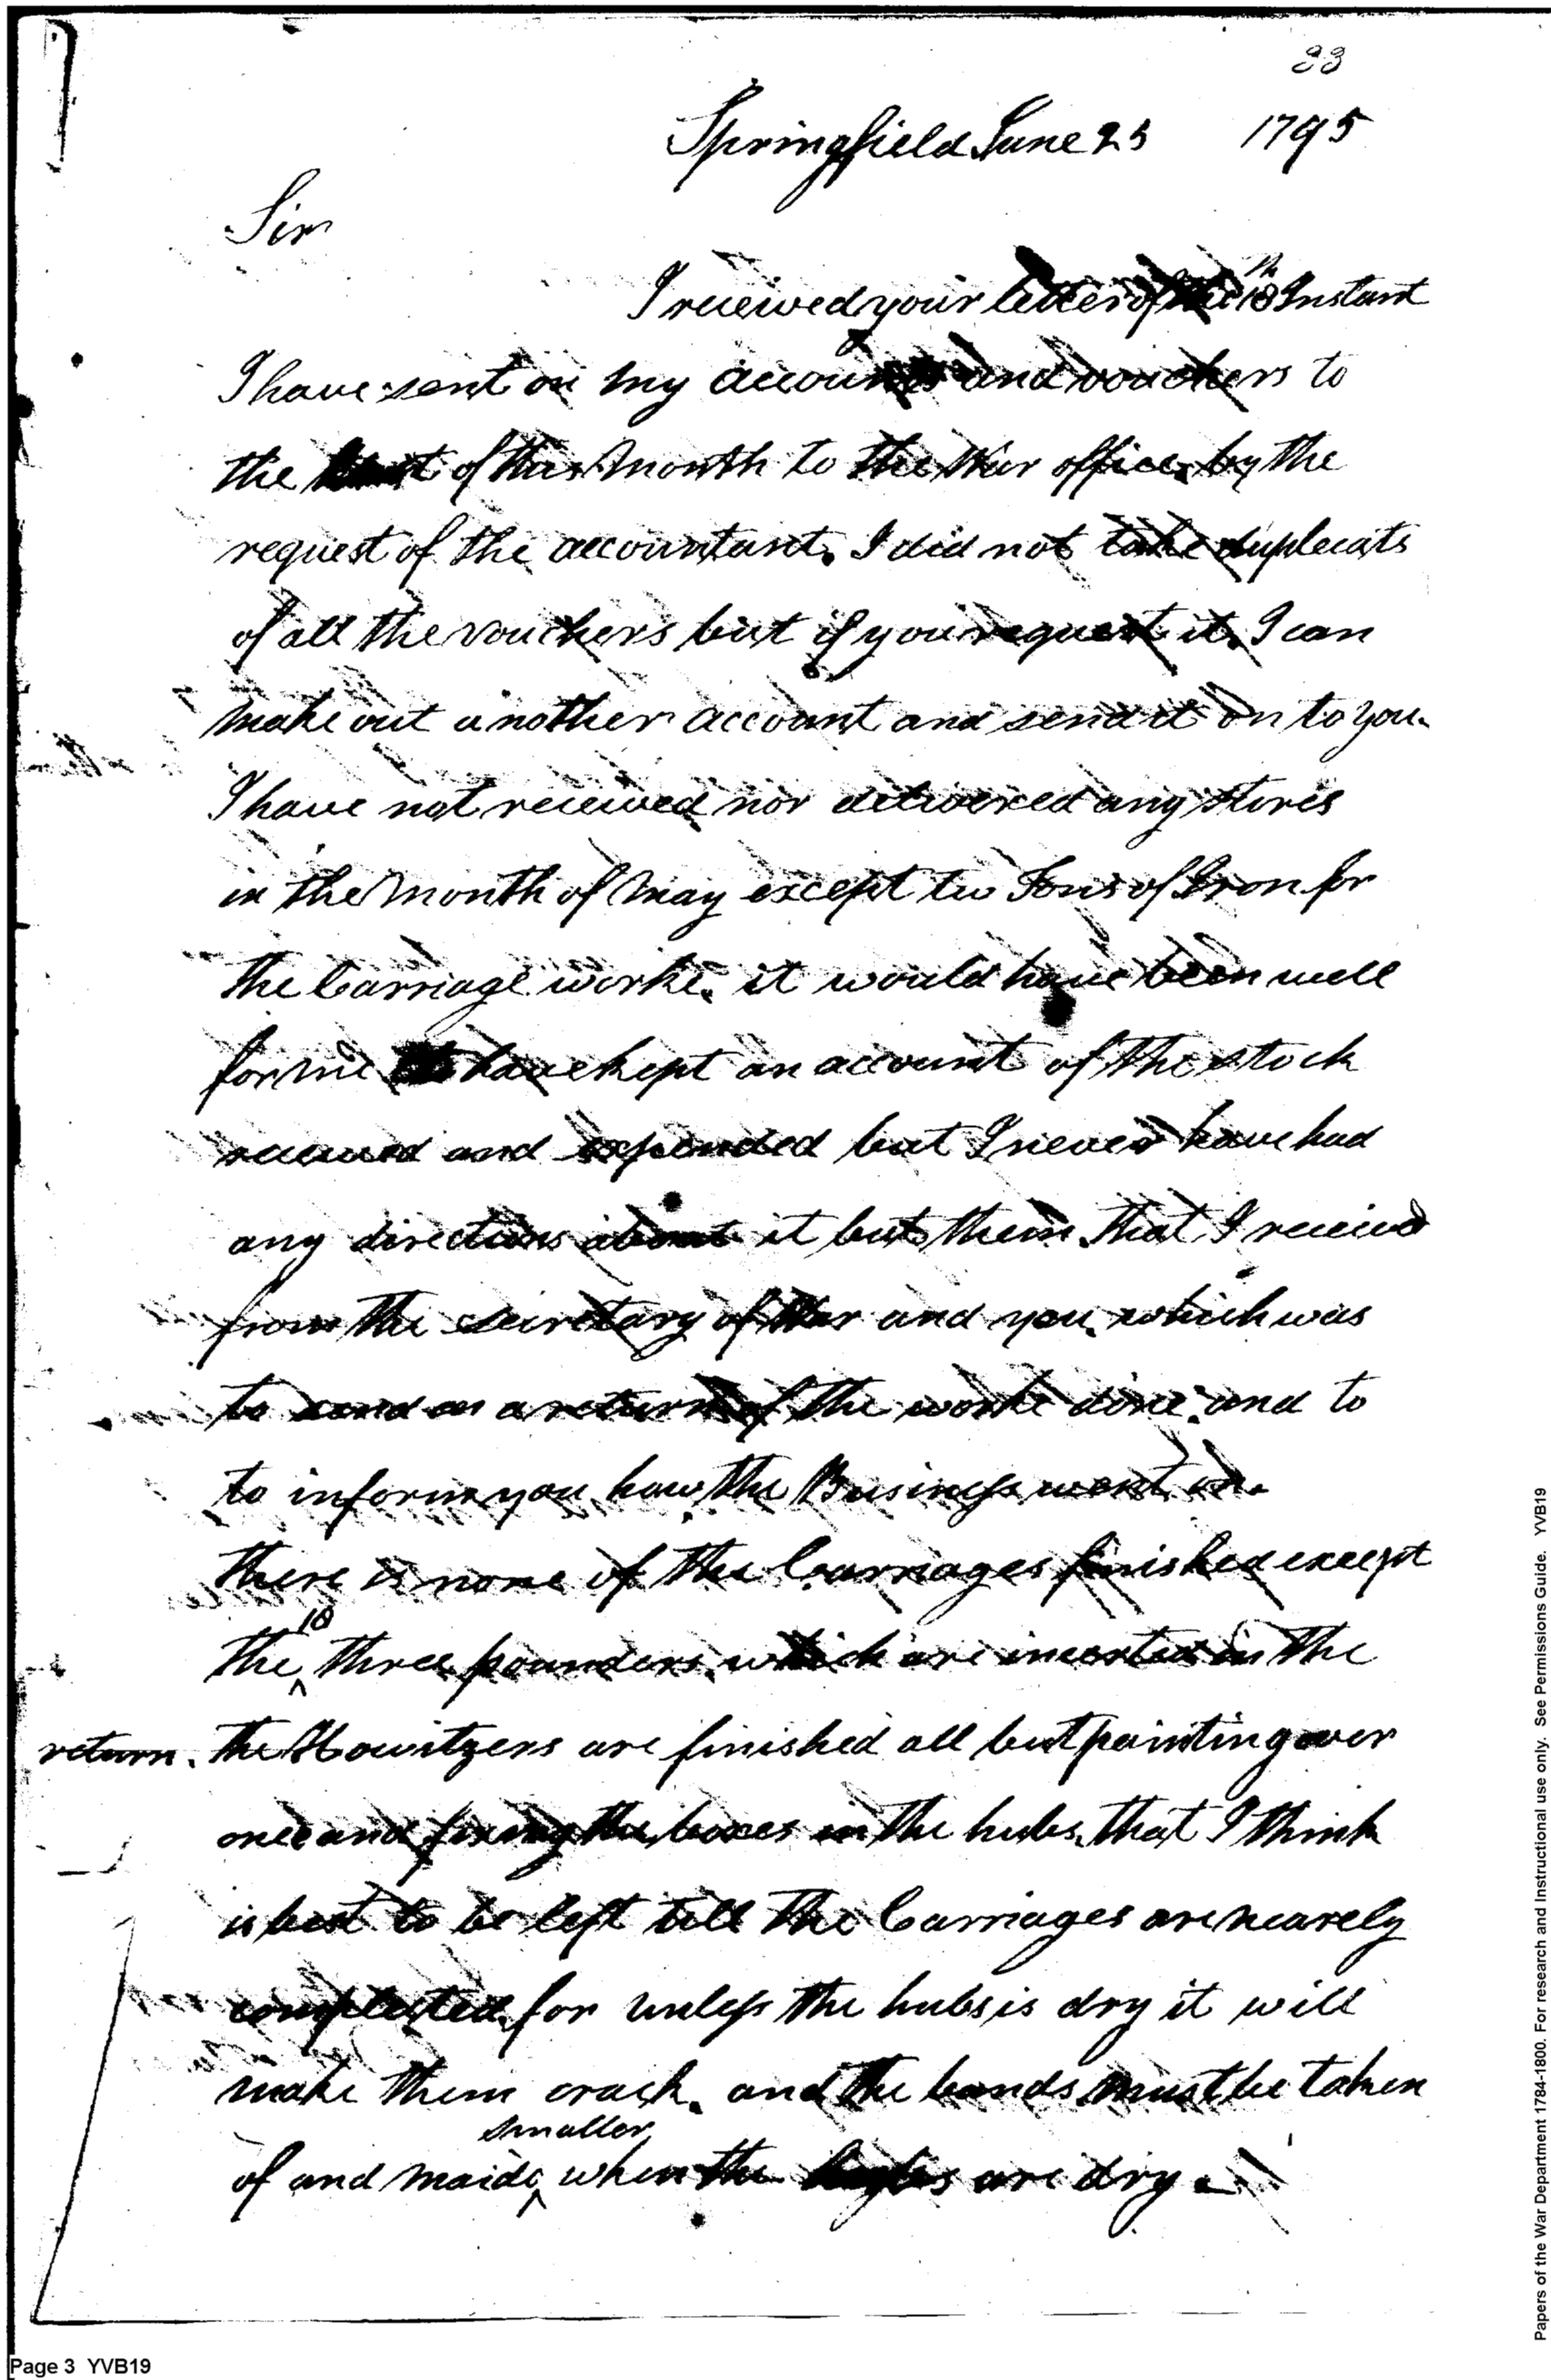 33
Springfield June 25 1795
Sir
I received your letter of the 18th Instant
I have sent on my accounts and vouchers to
the of this Month to the War office, by the
request of the accountant. I did not take duplecats
of all the vouchers but if you request it, I can
make out another account and send it on to you.
I have not received nor delivered any stores
in the Month of May except two Tons of Iron for
the Carriage worke. it would have been well
for me to have kept an account of the stock
received and expended but I never have had
any directions about it but them that I received
from the secretary of War and you, which was
to send on a return of the worke done and to
to inform you how the Business went on.
there is none of the Carriages finished except
the 10 three pounders, which are incerted in the
return. the Howitzers are finished all but painting over
once and fixing the boxes in the hubs, that I think
is best to be left till the Carriages are nearely
completed, for unless the hubs is dry it will
make them crack. and the bands must be taken
of and maide smaller when the are dry.
Page 3 YVB19
Papers of the War Department 1784-1800. For research and Instructional use only. See Permissions Guide. YVB19